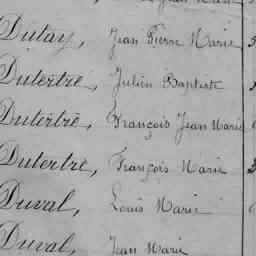 Dutay, Jean Pierre Marie
Dutertre, Julien Baptiste
Dutertre, François Jean Marie
Dutertre, François Marie
Duval, Louis Marie
Duval, Jean Marie